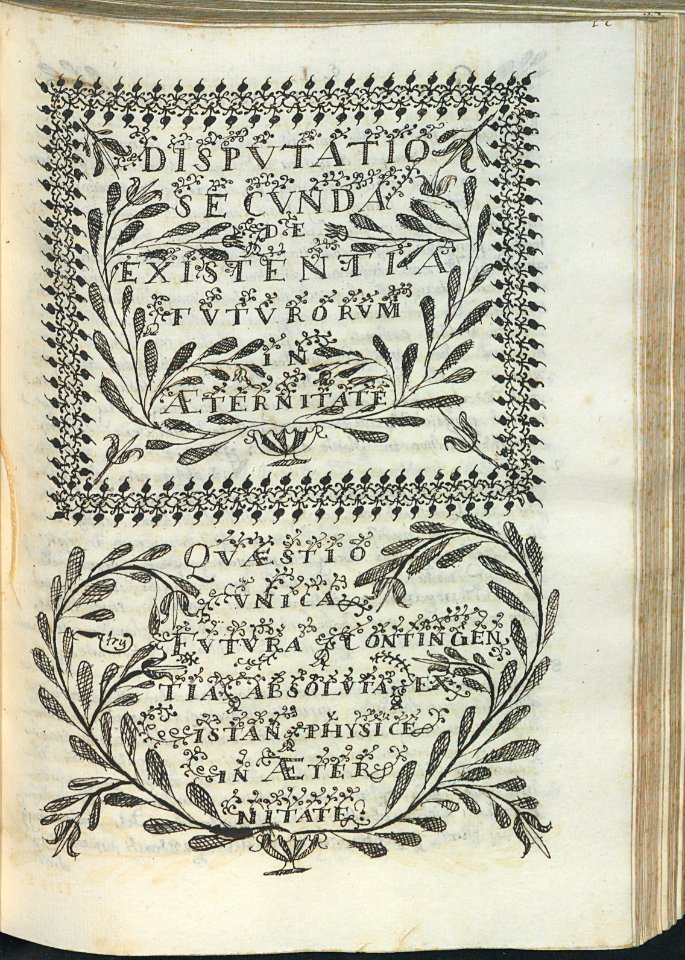 DISPVTATIO
SECVNDA
DE
EXISTENTIA
FVTVRORVM
IN
ÆTERNITATE
QVÆSTIO
VNICA
FVTVRA CONTINGEN
TIA, ABSOLVTA, EX
ISTAN PHYSICE
IN ÆTER
NITATE?